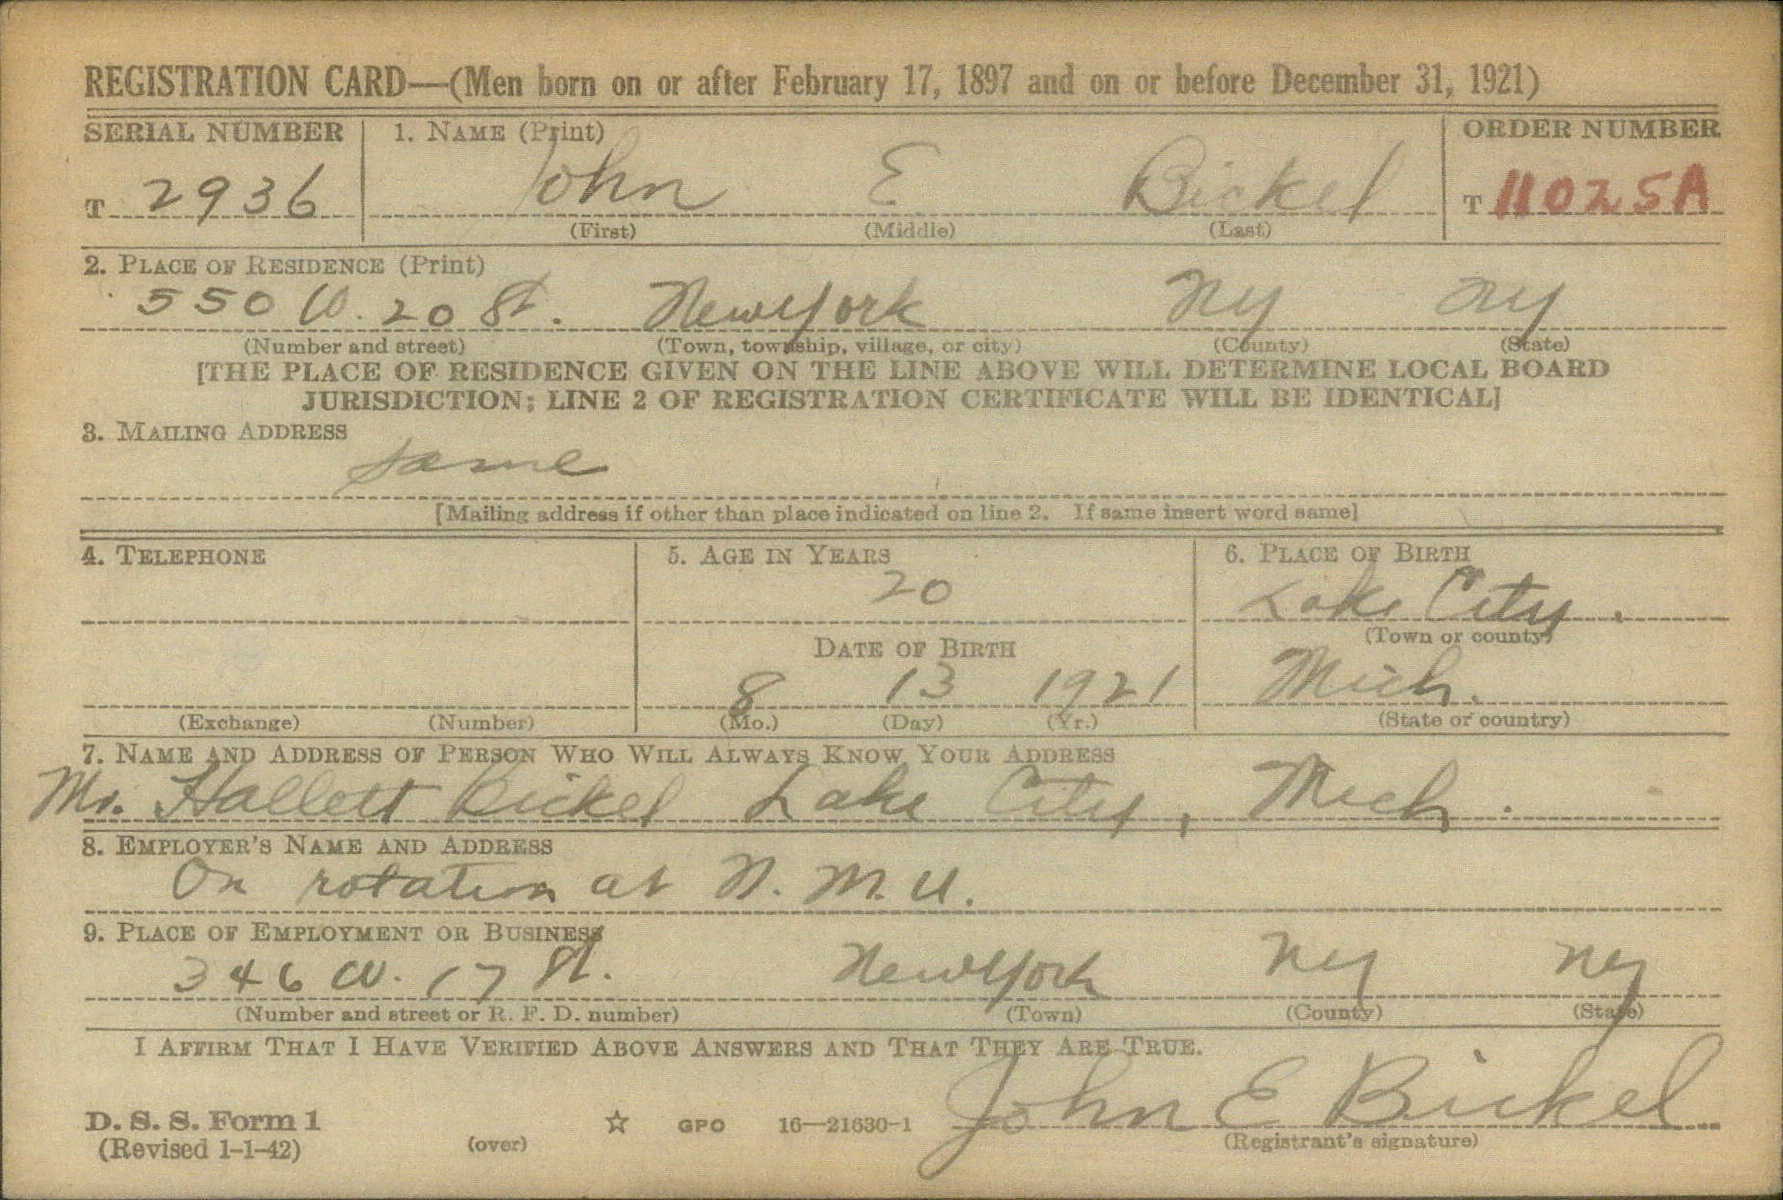 REGISTRATION CARD—(Men born on or after February 17, 1897 and on or before December 31, 1921)
SERIAL NUMBER 1. NAME (Print) ORDER NUMBER
T 2936 John E Bickel T 11025A
(First) (Middle) (Last)
2. PLACE OF RESIDENCE (Print)
550 W. 20 St. New York Ny Ny
(Number and street) (Town, township, village, or city) (County) (State)
[THE PLACE OF RESIDENCE GIVEN ON THE LINE ABOVE WILL DETERMINE LOCAL BOARD
JURISDICTION; LINE 2 OF REGISTRATION CERTIFICATE WILL BE IDENTICAL]
3. MAILING ADDRESS
Same
[Mailing address if other than place indicated on line 2. If same insert word same]
4. TELEPHONE 5. AGE IN YEARS 6. PLACE OF BIRTH
20 Lake City.
(Town or county)
DATE OF BIRTH
8 13 1921 Mich.
(Exchange) (Number) (Mo.) (Day) (Yr.) (State or country)
7. NAME AND ADDRESS OF PERSON WHO WILL ALWAYS KNOW YOUR ADDRESS
Mr. Hallett Bickel Lake City, Mich.
8. EMPLOYER'S NAME AND ADDRESS
On rotation at N. M. U.
9. PLACE OF EMPLOYMENT OR BUSINESS
346 W. 17 St. New York Ny Ny
(Number and street or R. F. D. number) (Town) (County) (State)
I AFFIRM THAT I HAVE VERIFIED ABOVE ANSWERS AND THAT THEY ARE TRUE.
John E Bickel
D. S. S. Form 1 ☆ GPO 16—21630-1
(Revised 1-1-42) (over) (Registrant's signature)